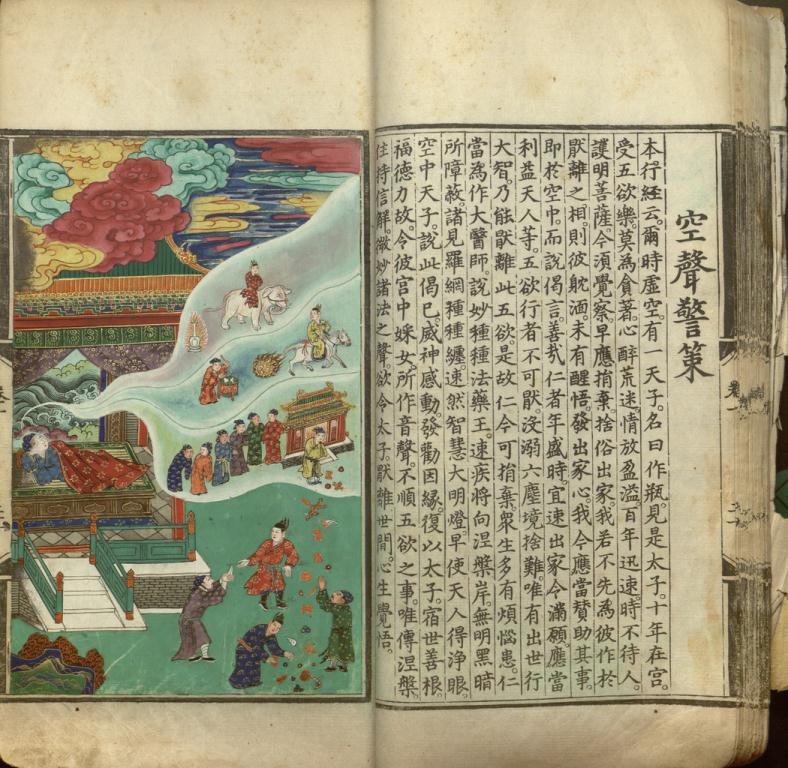 空聲警策
本行經云。爾時虛空。有一天子。名曰作瓶。見是太子。十年在宮。
受五欲樂。莫為貪著。心醉荒迷。情放盈溢。百年迅速。時不待人。
護明菩薩。今須覺察。早應捐棄。捨俗出家。我若不先為彼作於
厭離之相。則彼躭湎。未有醒悟。發出家心。我今應當贊助其事。
即於空中。而說偈言。善哉仁者年盛時。宜速出家令滿願。應當
利益天人等。五欲行者不可厭。沒溺六塵境捨難。唯有出世行
大智。乃能厭離此五欲。是故仁今可捐棄。衆生多有煩惱患。仁
當為作大醫師。說妙種種法藥王。速疾將向涅槃岸。無明黑暗
所障蔽。諸見羅網種種纏。速然智慧大明燈。早使天人得淨眼。
空中天子。說此偈已。威神感動。發勸因緣。復以太子。宿世善根。
福德力故。令彼宮中婇女。所作音聲。不順五欲之事。唯傳涅槃
住持信解。微妙諸法之聲。欲令太子。厭離世間。心生覺悟。
卷一